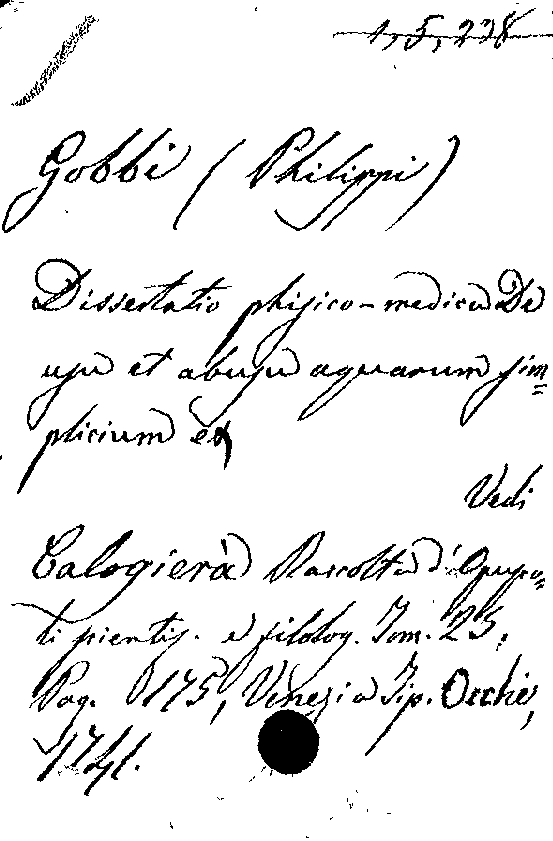 1, 5, 238
Gobbi (Philippi)
Dissertatio phisico-medica De
usu et abusu aquarum sim=
plicium
Vedi
Calogierà Raccolta d'Opuso=
li scientif. e filolog. Tom. 25,
Pag. 175, Venezia Tip. Occhi,
1741.